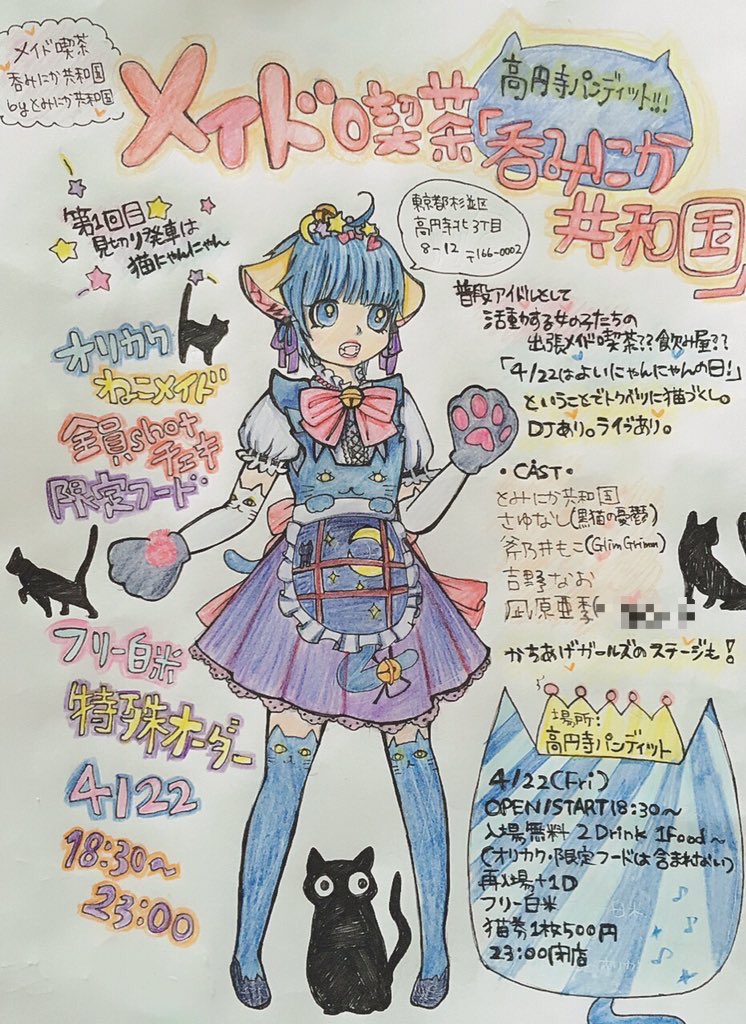 メイド喫茶
呑みにか共和国
byとみにか共和国
メイド喫茶
高円寺パンディット!!!
「呑みにか
共和国」
第1回目
見切り発車は
猫にゃんにゃん
東京都杉並区
高円寺北3丁目
8-12 〒166-0002
オリカク
ねこメイド
全員shot
チェキ
限定フード
普段アイドルとして
活動する女の子たちの
出張メイド喫茶??飲み屋??
「4/22はよいにゃんにゃんの日!」
ということでトクベツに猫づくし。
DJあり。ライブあり。
・CAST・
とみにか共和国
さゆなし(黒猫の憂鬱)
斧乃井もこ(GlimGrimm)
吉野なお
凪原亜季(
かちあげガールズのステージも!
フリー白米
特殊オーダー
4/22
18:30~
23:00
場所:
高円寺パンディット
4/22(Fri)
OPEN/START18:30~
入場無料 2Drink 1Food~
(オリカク・限定フードは含まれない)
再入場+1D
フリー白米
猫券1枚500円
23:00閉店